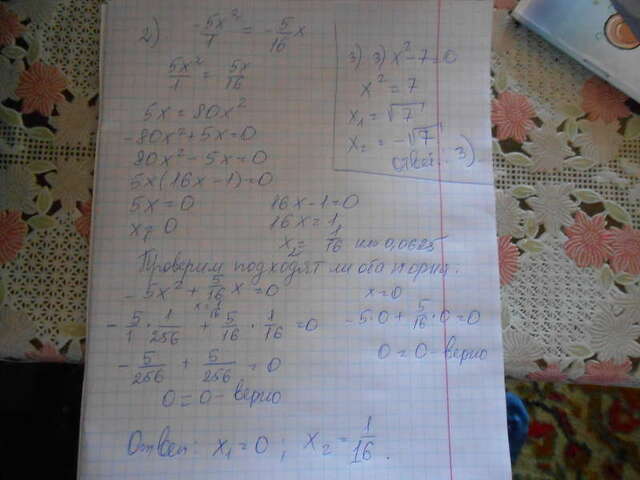 2) -5x²/1 = -5/16 x
5x²/1 = 5x/16
5x = 80x²
-80x² + 5x = 0
80x² - 5x = 0
5x(16x - 1) = 0
5x = 0 16x - 1 = 0
x₁ = 0 16x = 1
x₂ = 1/16 или 0,0625
Проверим подходят ли оба корня:
-5x² + 5/16 x = 0
x = 1/16
-5/1 · 1/256 + 5/16 · 1/16 = 0
-5/256 + 5/256 = 0
0 = 0 - верно
x = 0
-5·0 + 5/16 · 0 = 0
0 = 0 - верно
Ответ: x₁ = 0 ; x₂ = 1/16 .
3) 3) x² - 7 = 0
x² = 7
x₁ = √7
x₂ = -√7
ответ: 3)